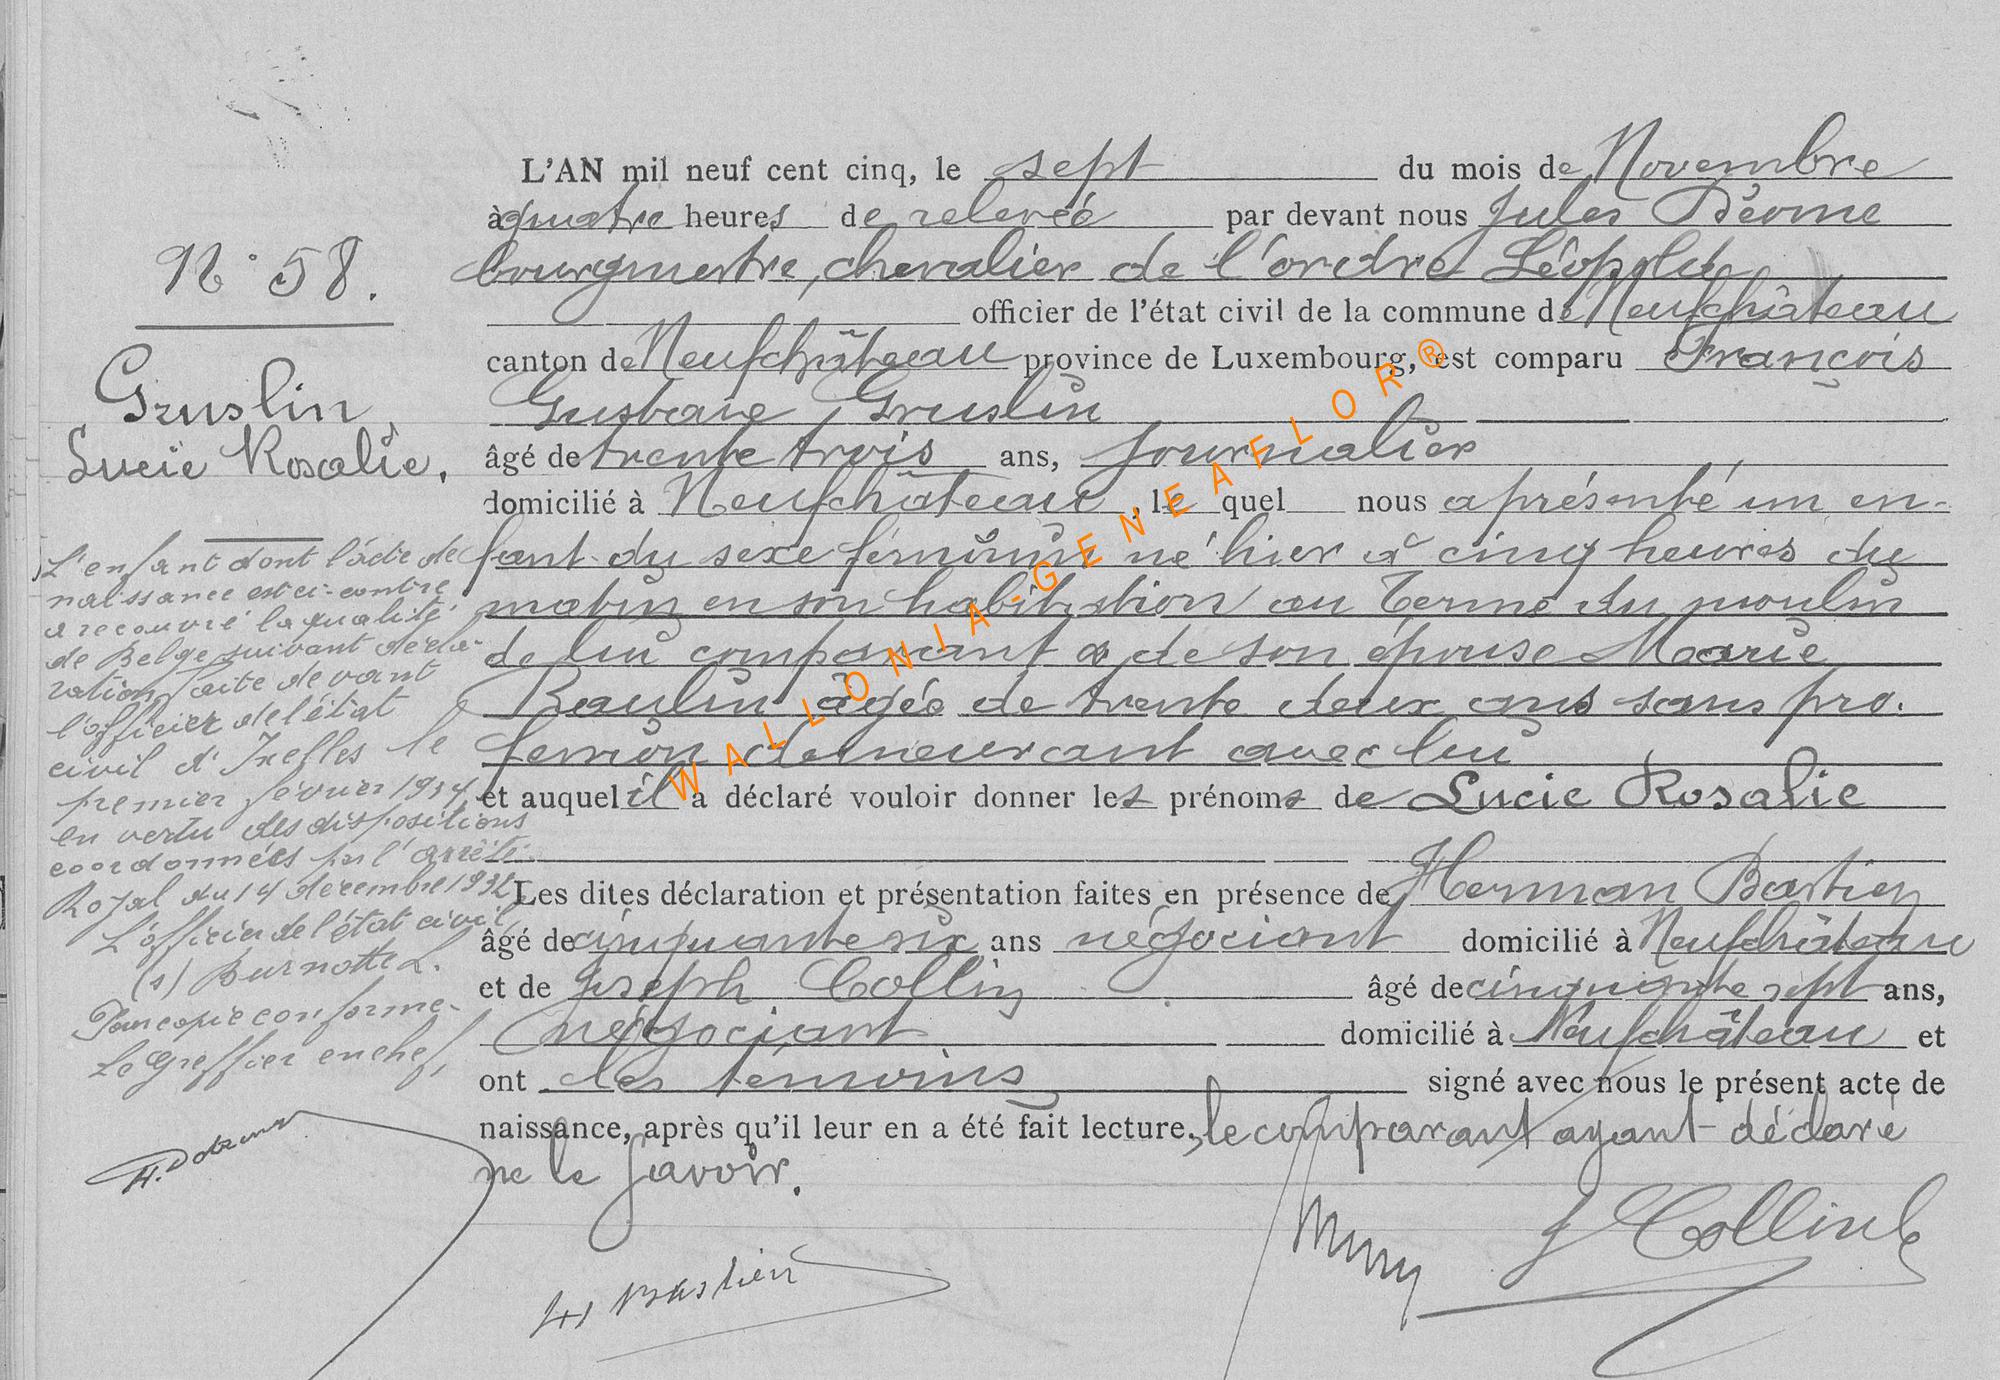 N° 58.
Gruslin
Lucie Rosalie.
L'enfant dont l'acte de
naissance est ci-contre
a recouvré la qualité
de Belge suivant décla-
ration faite devant
l'officier de l'état
civil d'Ixelles le
premier février 1934,
en vertu des dispositions
coordonnées par l'arrêté
Royal du 14 décembre 1932
L'officier de l'état civil
(s) Burnotte L.
Pour copie conforme.
Le Greffier en chef,
L'AN mil neuf cent cinq, le sept du mois de Novembre
à quatre heures de relevée par devant nous Jules
bourgmestre, chevalier de l'ordre Léopold
officier de l'état civil de la commune de Neufchâteau
canton de Neufchâteau province de Luxembourg, est comparu François
Gustave Gruslin
âgé de trente trois ans, journalier
domicilié à Neufchâteau, le quel nous a présenté un en-
fant du sexe féminin né hier à cinq heures du
matin en son habitation au Terme du moulin
de lui comparant & de son épouse Marie
Baulin âgée de trente deux ans sans pro.
fession demeurant avec lui
et auquel il a déclaré vouloir donner les prénoms de Lucie Rosalie
Les dites déclaration et présentation faites en présence de Herman Bastien
âgé de cinquante six ans négociant domicilié à Neufchâteau
et de Joseph Collin âgé de cinquante sept ans,
négociant domicilié à Neufchâteau et
ont les témoins signé avec nous le présent acte de
naissance, après qu'il leur en a été fait lecture, le comparant ayant déclaré
ne le savoir.
H Bastien
J Collin
WALLONIA-GENEAFLOR®